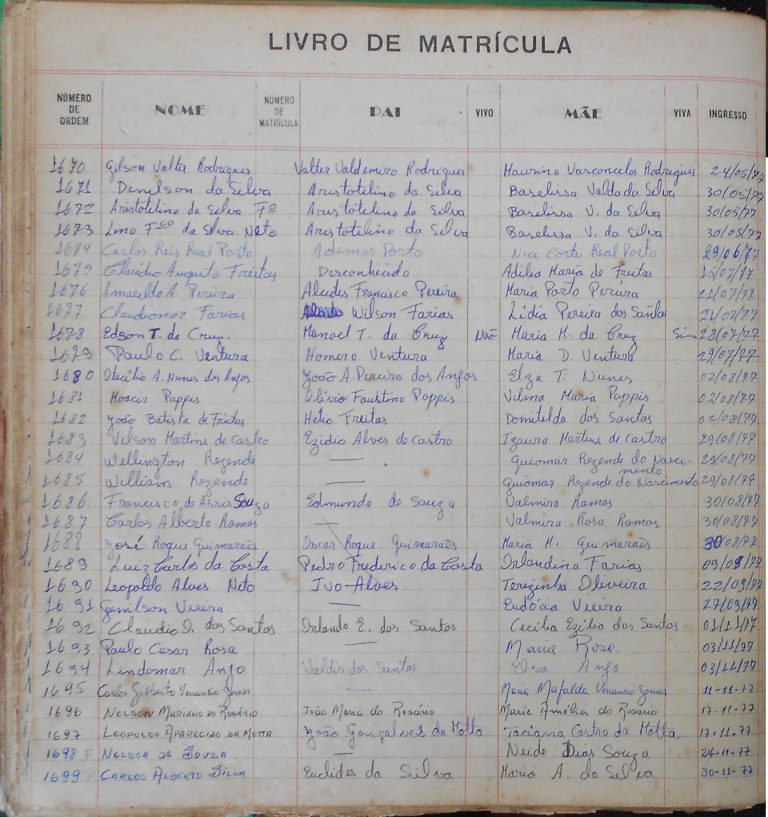 LIVRO DE MATRÍCULA
NÚMERO DE ORDEM NOME NÚMERO DE MATRÍCULA PAI VIVO MÃE VIVA INGRESSO
1670 Gilson Valter Rodrigues Valter Valdemiro Rodrigues Maurina Vasconcelos Rodrigues 24/05/77
1671 Denilson da Silva Aristotelino da Silva Baselissa Valda da Silva 30/05/77
1672 Aristotelino da Silva Fº Aristotelino da Silva Baselissa V. da Silva 30/05/77
1673 Lino da Silva Neto Aristotelino da Silva Baselissa V. da Silva 30/05/77
1674 Carlos Reis Real Porto Ademar Porto Nice Corte Real Porto 29/06/77
1675 Claudio Augusto Freitas Desconhecido Adilia Maria de Freitas 15/07/77
1676 Amarildo A. Pereira Alcides Francisco Pereira Maria Porto Pereira 21/07/77
1677 Claudiomar Farias Wilson Farias Lídia Pereira dos Santos 21/07/77
1678 Edson T. da Cruz. Manoel T. da Cruz Não Maria M. da Cruz Sim 28/07/77
1679 Paulo C. Ventura Homero Ventura Maria D. Ventura 29/07/77
1680 Otacílio A. Nunes dos Anjos João A Pereira dos Anjos Elza T. Nunes 02/08/77
1681 Moacir Pappis Olívio Faustino Pappis Vilma Maria Pappis 02/08/77
1682 João Batista de Freitas Helio Freitas Domitilda dos Santos 02/08/77
1683 Vilson Martins de Castro Ezidio Alves de Castro Izaura Martins de Castro 29/08/77
1684 Wellington Rezende — Guiomar Rezende do Nasci-mento 29/08/77
1685 William Rezende — Guiomar Rezende do Nascimento 29/08/77
1686 Francisco de Assis Souza Edmundo de Souza Valmira Ramos 30/08/77
1687 Carlos Alberto Ramos — Valmira Rosa Ramos 30/08/77
1688 José Roque Guimarães Oscar Roque Guimarães Maria M. Guimarães. 30/08/77
1689 Luiz Carlos da Costa Pedro Frederico da Costa Orlandina Farias 09/09/77
1690 Leopoldo Alves Neto Ivo Alves. Terezinha Oliveira 22/09/77
1691 Genilson Vieira — Eudócia Vieira 27/09/77
1692 Claudio O. dos Santos Orlando E. dos Santos Cecilia Ezilia dos Santos 01/11/77
1693 Paulo Cesar Rosa — Maria Rosa 03/11/77
1694 Lindomar Anjo Valdir dos Santos Elza Anjo 03/11/77
1695 Carlos Gilberto Venancio Gomes — Maria Mafalda Venancio Gomes 11-11-77
1696 NELSON MARIANO DO ROSÁRIO João Maria do Rosário Maria Amélia do Rosario 17-11-77
1697 LEOPOLDO APARECIDO DA MOTTA João Gonçalves da Motta Taciana Castro da Motta. 17-11-77
1698 NELSON DE SOUZA — Neide Dias Souza 24-11-77
1699 CARLOS ALBERTO SILVA Euclides da Silva Maria A. da Silva 30-11-77